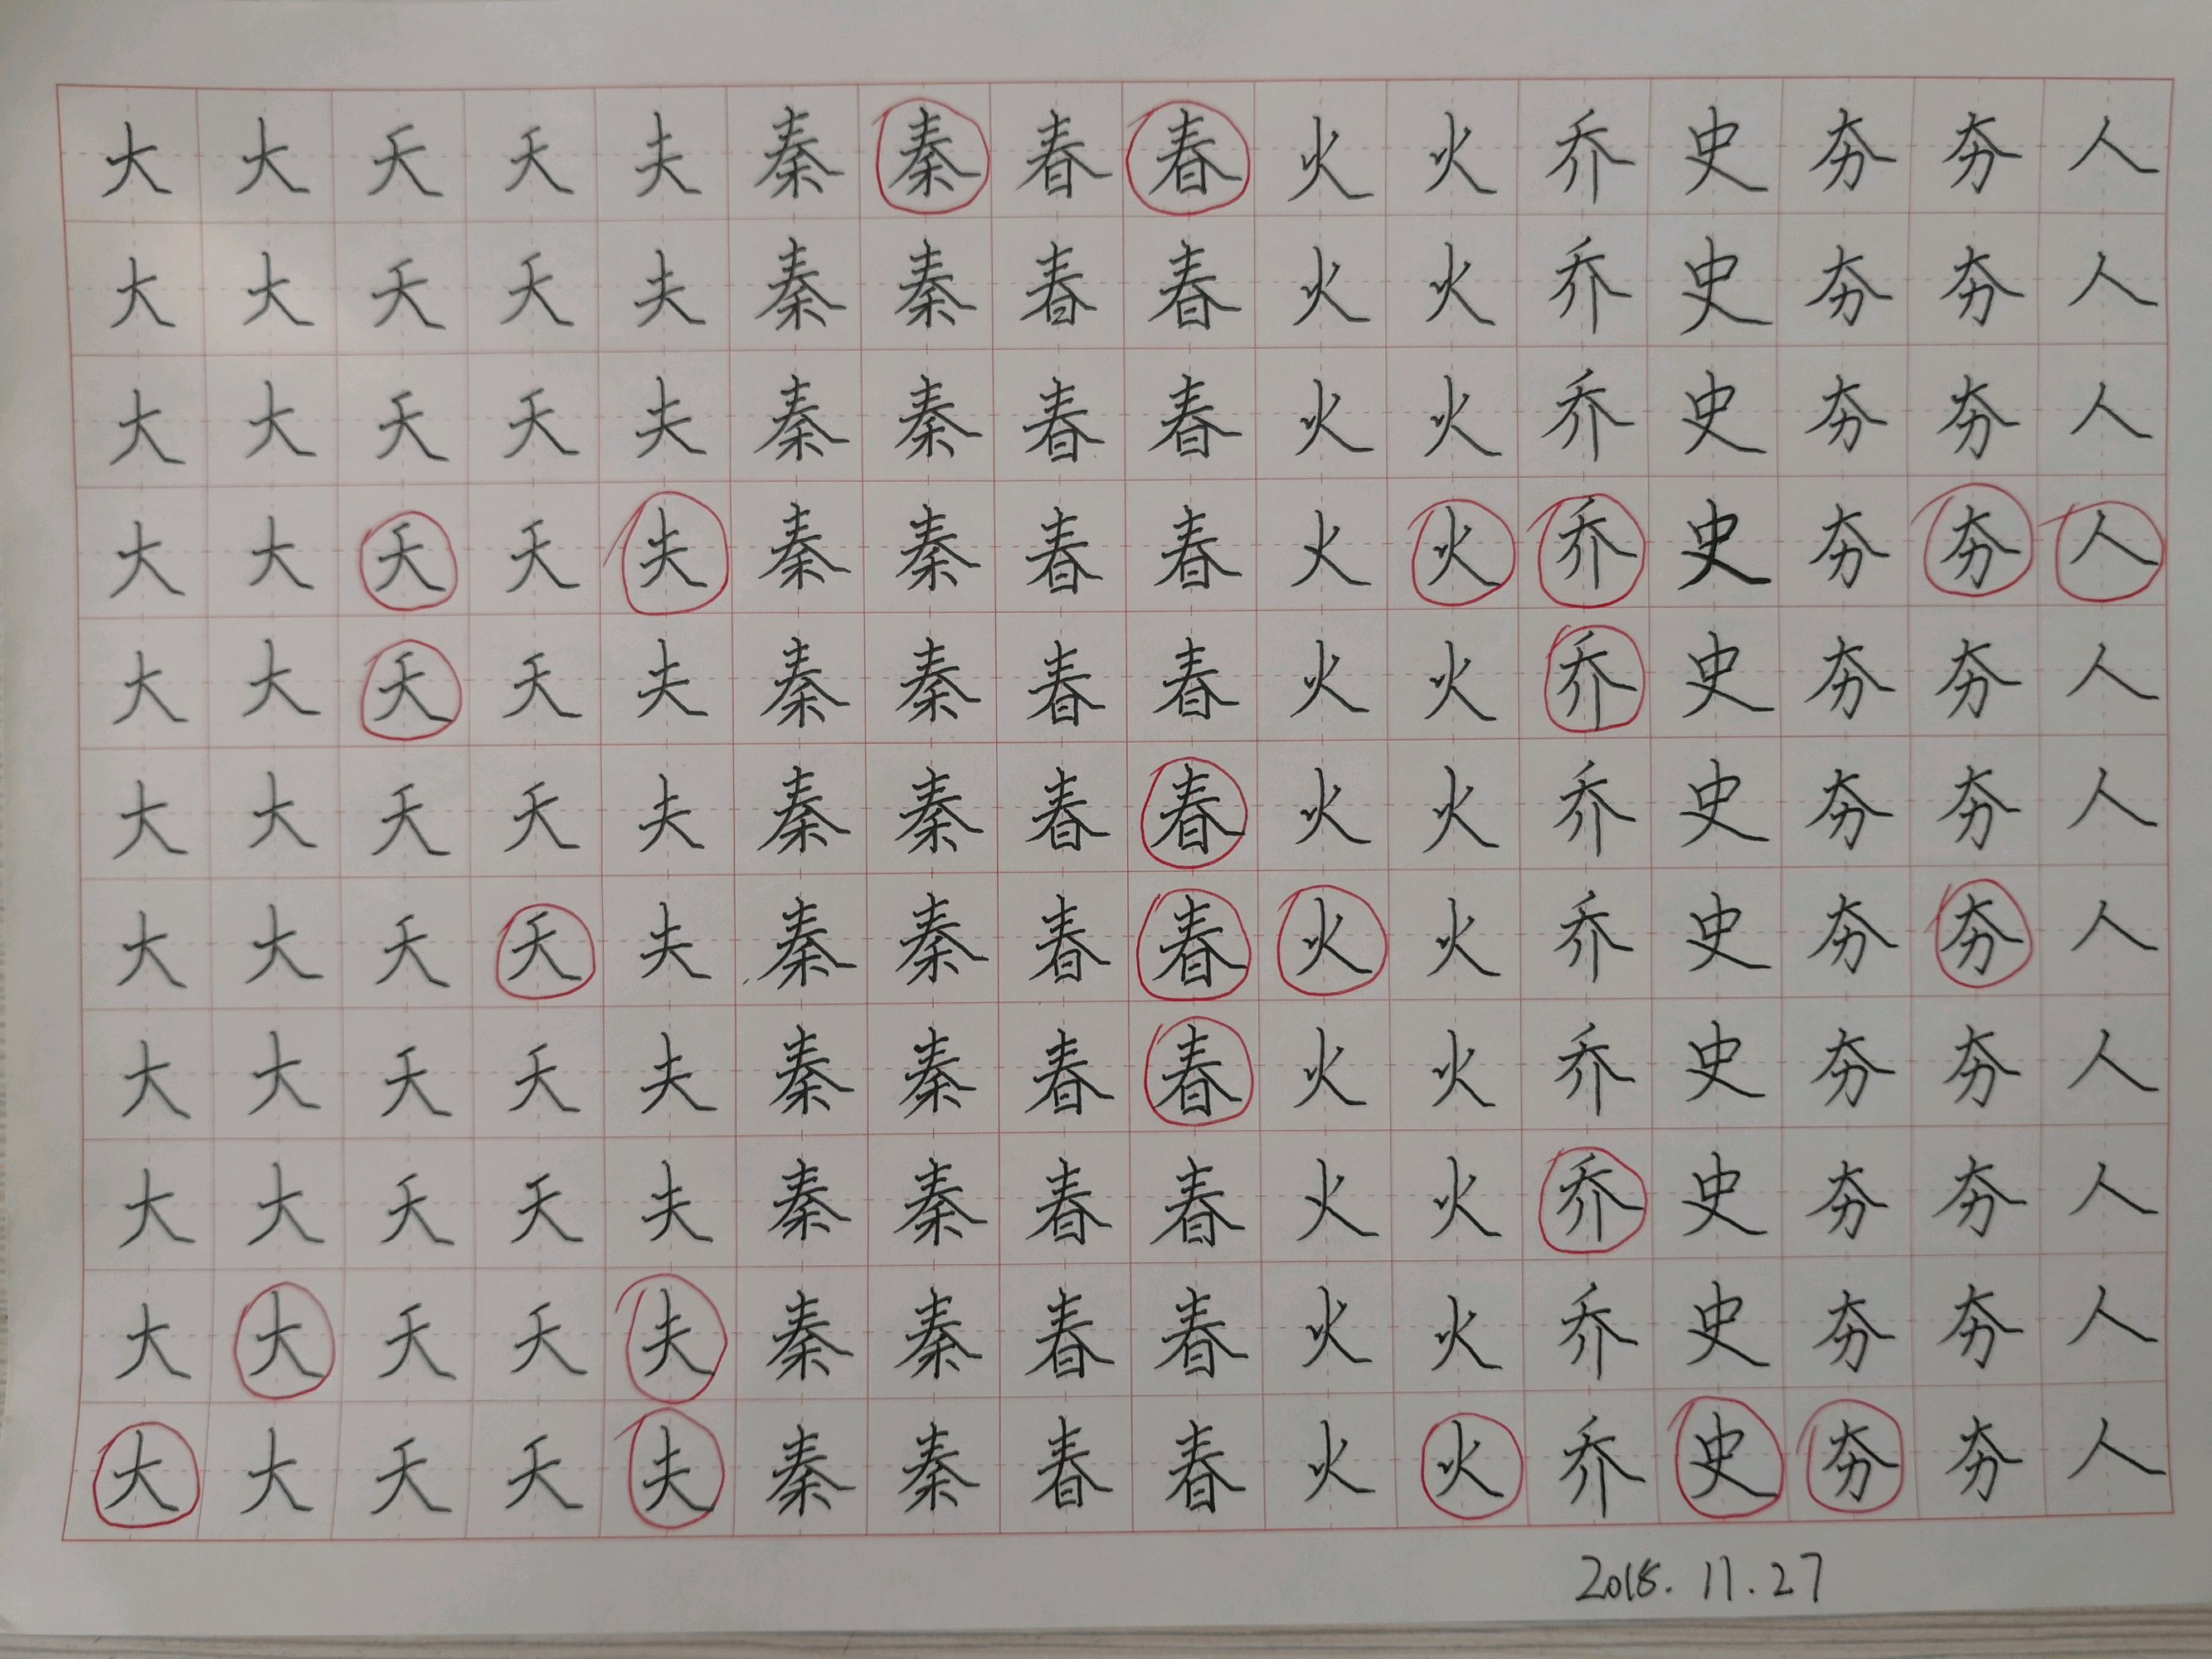 大大天天夫秦秦春春火火乔史夯夯人
大大天天夫秦秦春春火火乔史夯夯人
大大天天夫秦秦春春火火乔史夯夯人
大大天天夫秦秦春春火火乔史夯夯人
大大天天夫秦秦春春火火乔史夯夯人
大大天天夫秦秦春春火火乔史夯夯人
大大天天夫秦秦春春火火乔史夯夯人
大大天天夫秦秦春春火火乔史夯夯人
大大天天夫秦秦春春火火乔史夯夯人
大大天天夫秦秦春春火火乔史夯夯人
大大天天夫秦秦春春火火乔史夯夯人
2018.11.27